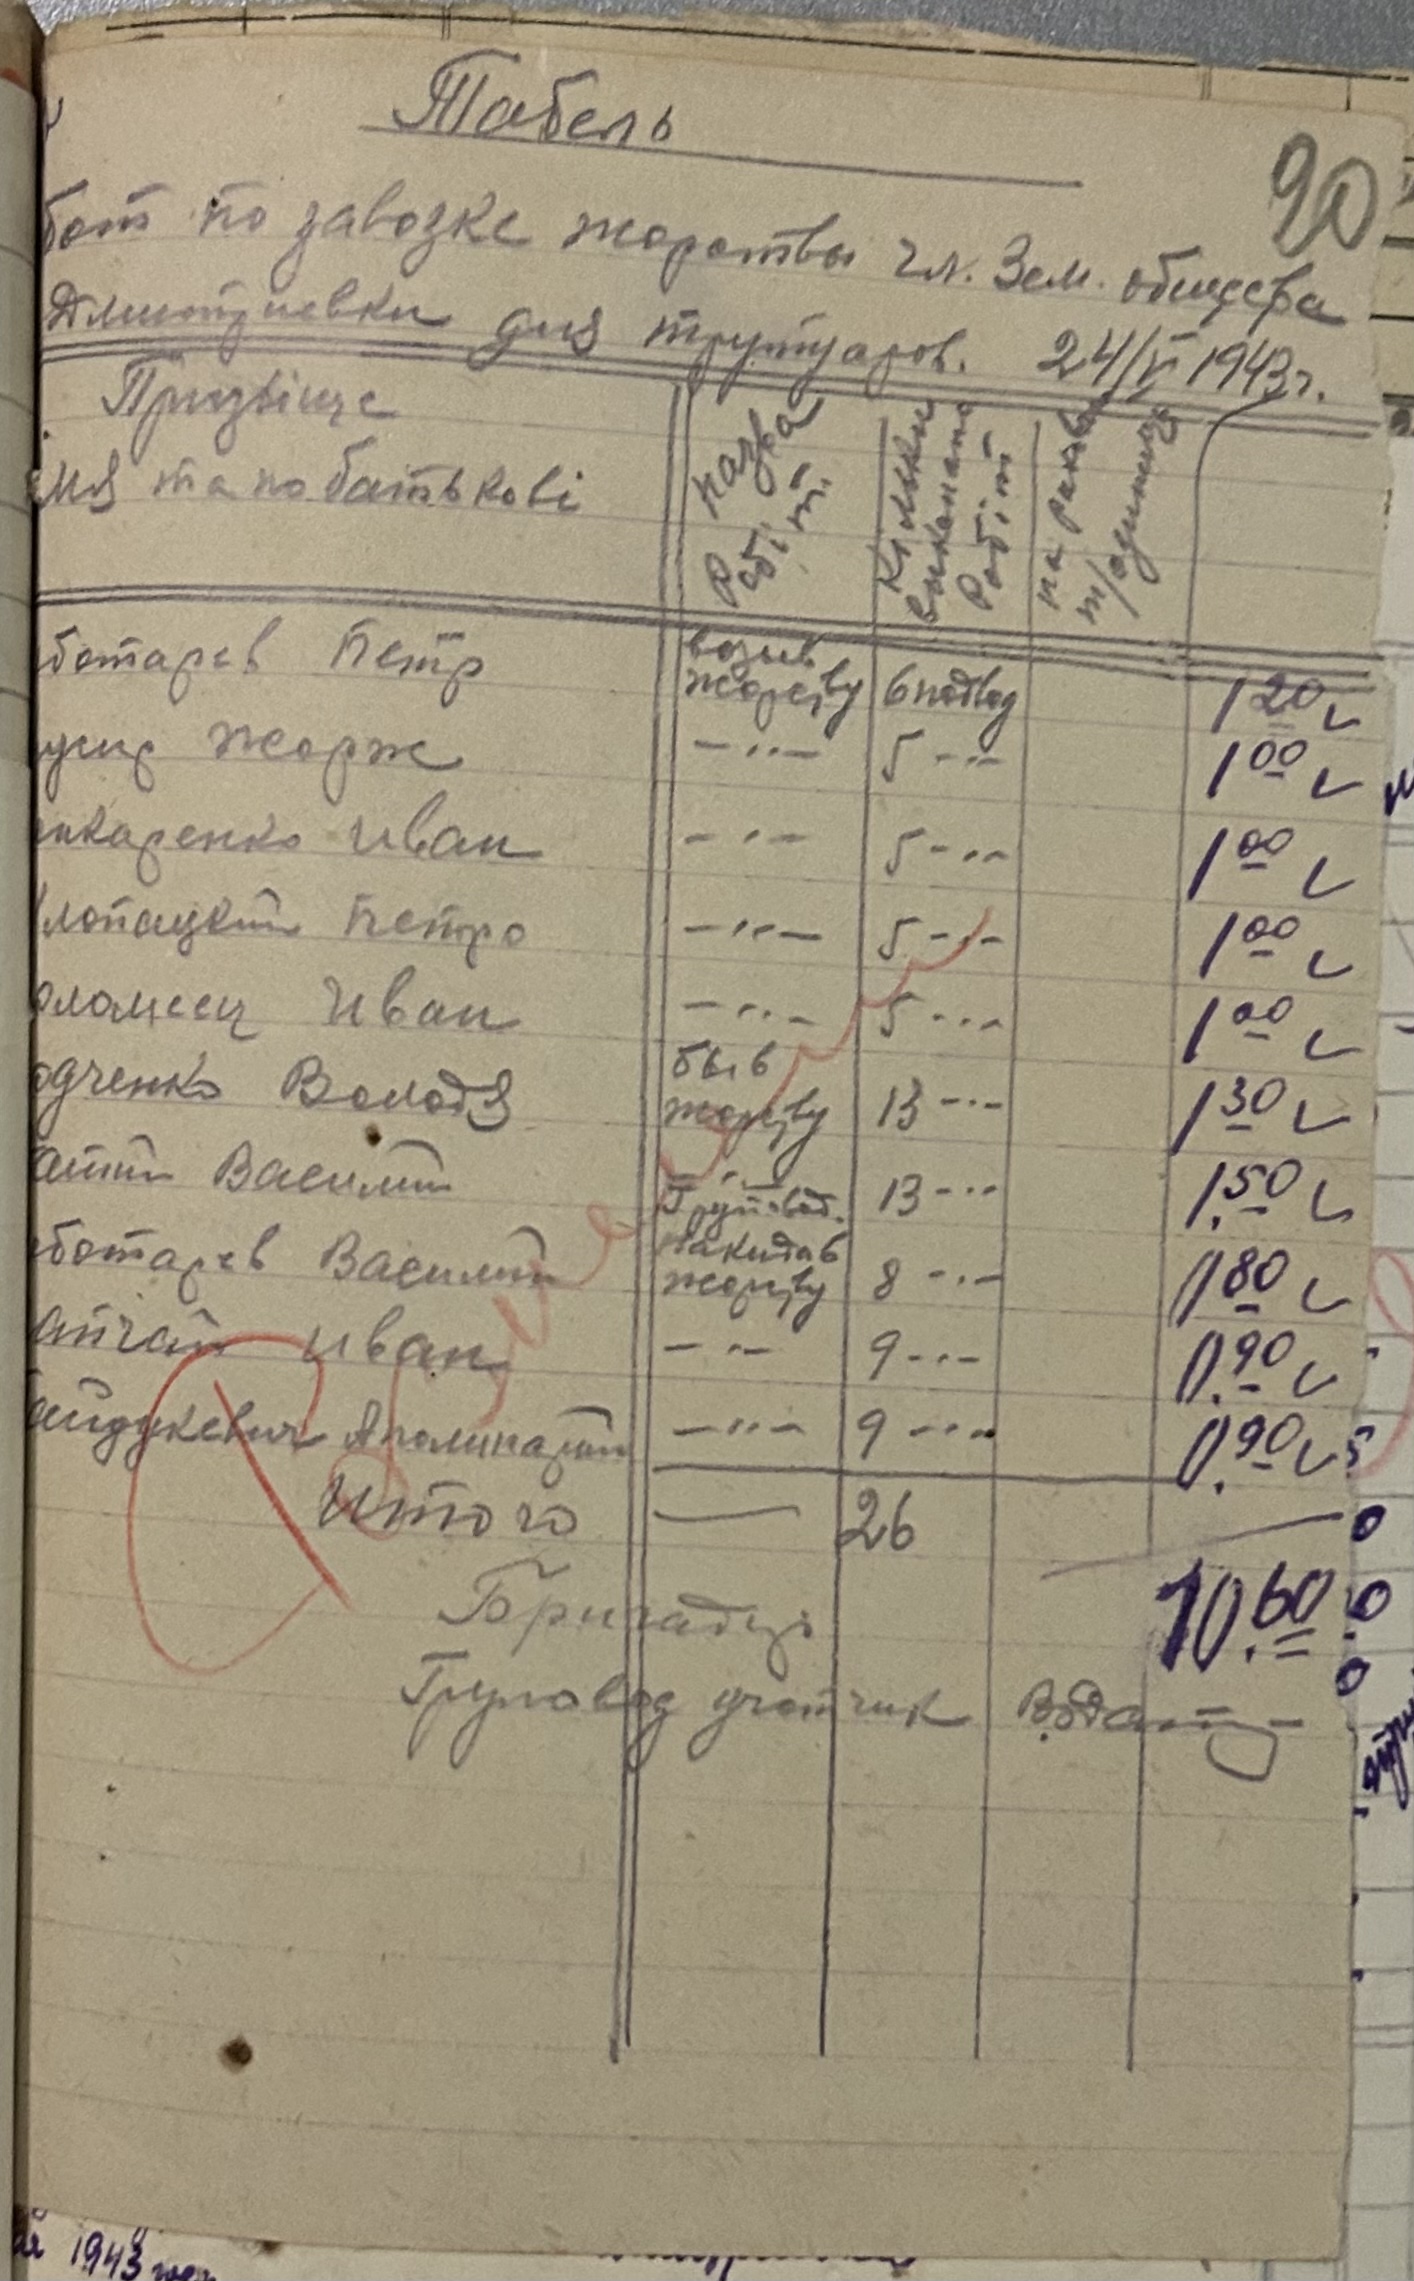 Табель
90
бот по завозке жорствы чл. Зем. общества
Дмитриевки для трутуаров. 24/V 1943 г.
Призвіще
мя та по батькові
Назва робіт.
Кількість виконаних робіт
на
т/одиниць
ботарев Петр возив жорству 6 подвод 1 20
Жорж —"— 5 —"— 1 00
нкаренко Иван —"— 5 —"— 1 00
лопацкий Петро —"— 5 —"— 1 00
оломеец Иван —"— 5 —"— 1 00
дченко Володя бив жорству 13 —"— 1 30
Василий Груповод. 13 —"— 1.50
ботарев Василий накидав жорству 8 —"— 0 80
апчай Иван —"— 9 —"— 0.90
айдукевич Аполинарий —"— 9 —"— 0.90
Итого — 26
10.60
Бригадир
Груповод учотчик
1943